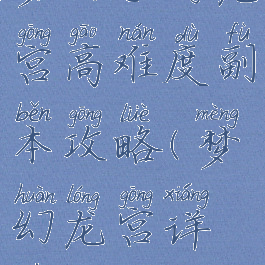 gōng gāo nán dù fù
宫高难度副
běn gōng lüè mèng
本攻略(梦
huàn lóng gōng xiáng
幻龙宫详